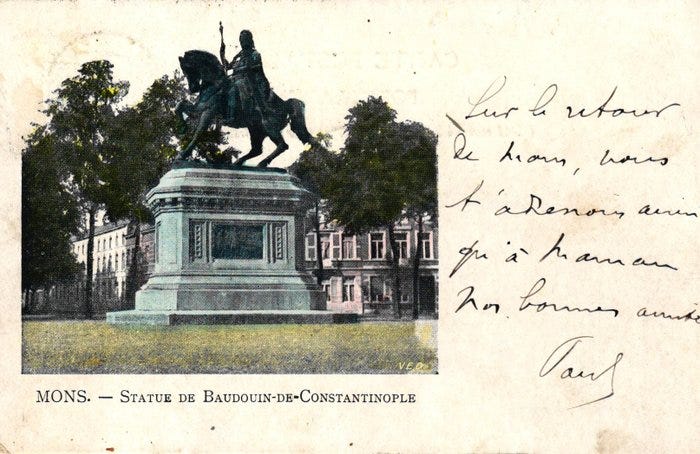 Sur le retour
de Mons, nous
t'adressons ainsi
qu'à Maman
Nos bonnes amitiés
Paul
MONS. — STATUE DE BAUDOUIN-DE-CONSTANTINOPLE